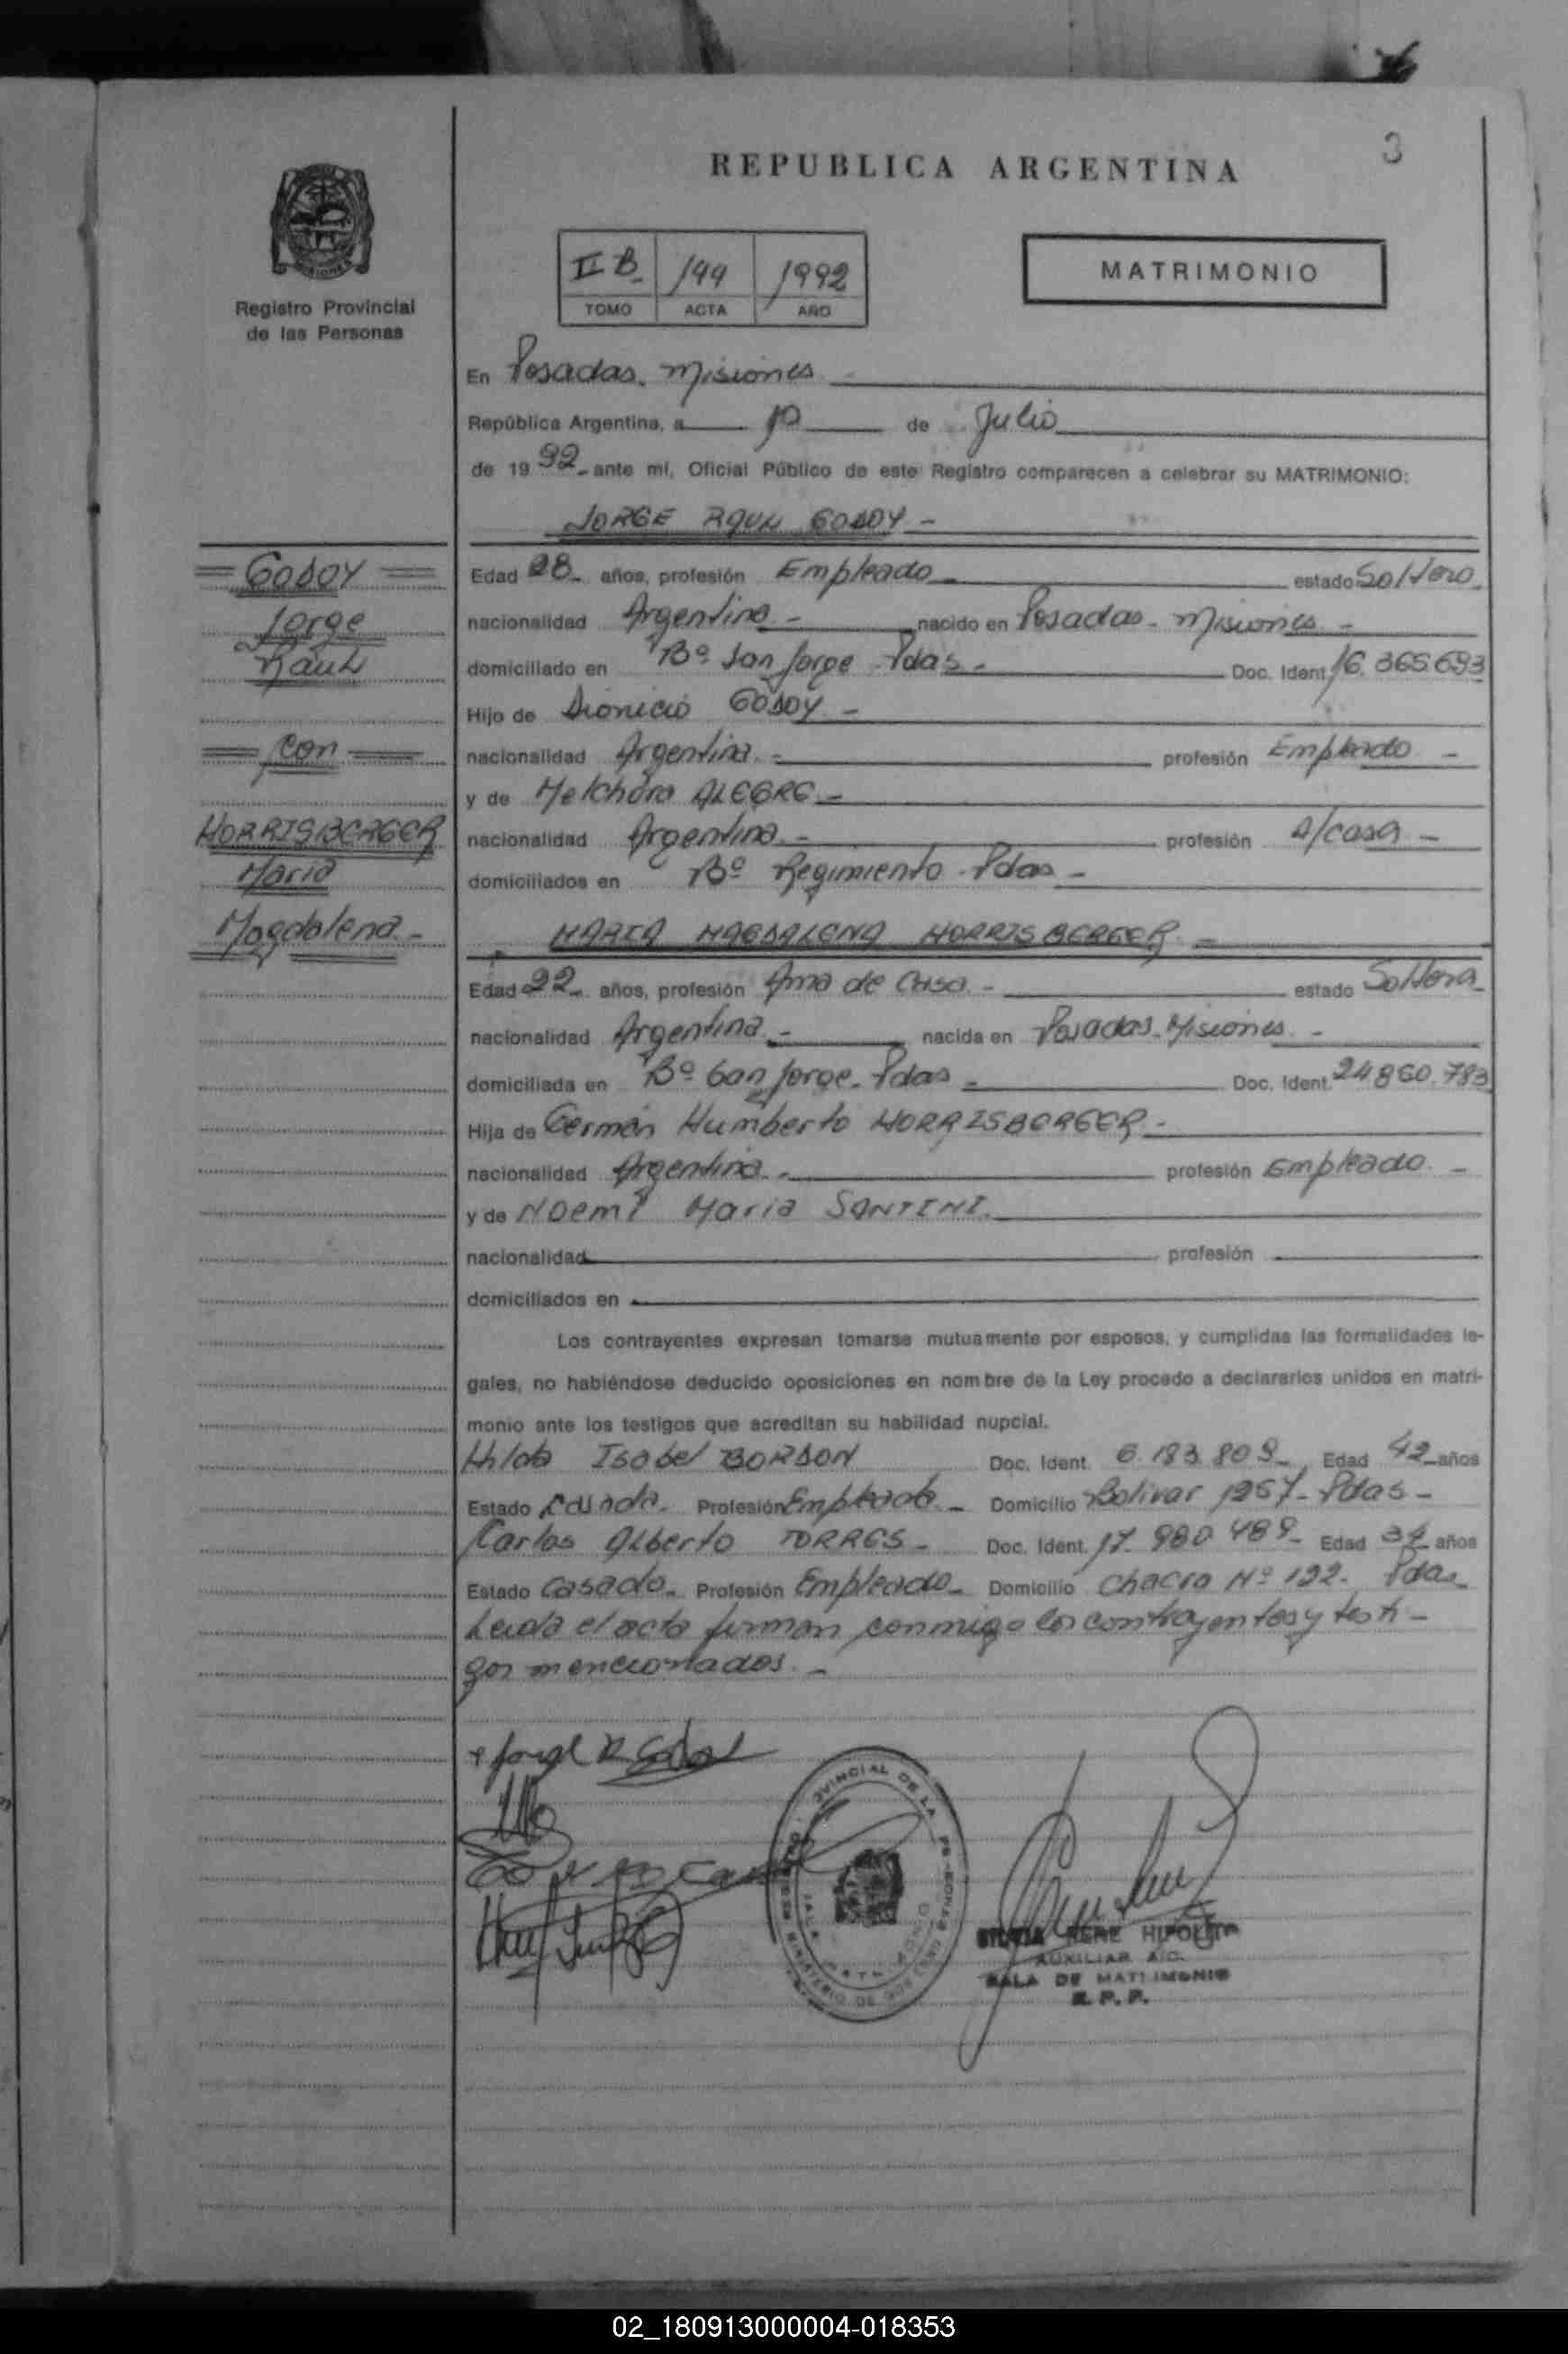 3
REPUBLICA ARGENTINA
MISIONES
Registro Provincial
de las Personas
II B. 144 1992
TOMO ACTA AÑO
MATRIMONIO
En Posadas. Misiones
República Argentina, a de Julio
de 1992 ante mí, Oficial Público de este Registro comparecen a celebrar su MATRIMONIO:
JORGE RAUL GODOY -
GODOY
Jorge
Raul
con
HORRISBERGER
Maria
Magdalena.-
Edad 28 años, profesión Empleado estado Soltero
nacionalidad Argentina - nacido en Posadas - Misiones -
domiciliado en Bº San Jorge - Pdas - Doc. Ident. 16.365.693
Hijo de Dionicio GODOY -
nacionalidad Argentina.- profesión Empleado -
y de Melchora ALEGRE -
nacionalidad Argentina.- profesión A/casa -
domiciliados en Bº Regimiento - Pdas -
MARIA MAGDALENA HORRISBERGER. -
Edad 22 años, profesión Ama de Casa. - estado Soltera
nacionalidad Argentina - nacida en Posadas - Misiones. -
domiciliada en Bº San Jorge - Pdas - Doc. Ident. 24.860.783
Hija de Germán Humberto HORRISBERGER -
nacionalidad Argentina.- profesión Empleado. -
y de Noemí Maria SANTINI.
nacionalidad profesión
domiciliados en
Los contrayentes expresan tomarse mutuamente por esposos, y cumplidas las formalidades le-
gales, no habiéndose deducido oposiciones en nombre de la Ley procedo a declararlos unidos en matri-
monio ante los testigos que acreditan su habilidad nupcial.
Hilda Isabel BORDON Doc. Ident. 6.183.809 Edad 42 años
Estado Casada - Profesión Empleada - Domicilio Bolivar 1257 - Pdas -
Carlos Alberto TORRES - Doc. Ident. 17.980.489 - Edad 34 años
Estado Casado - Profesión Empleado - Domicilio Chacra Nº 122. Pdas
Leida el acta firman conmigo los contrayentes y testi-
gos mencionados. -
Jorge R Godoy
RENE HIPOLITO
AUXILIAR A/C.
SALA DE MATRIMONIO
R. P. P.
02_180913000004-018353